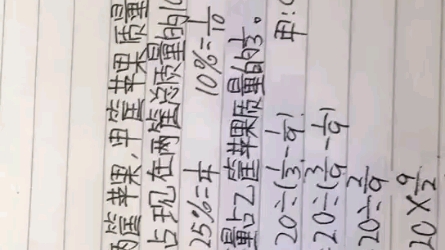 两筐苹果,甲筐苹果质量
占现在两筐总质量的1
25%=1/4 10%=1/10
量占乙筐苹果质量的1/3。
20÷(1/3-1/9) 甲:
=20÷(3/9-1/9)
20÷2/9
20×9/2